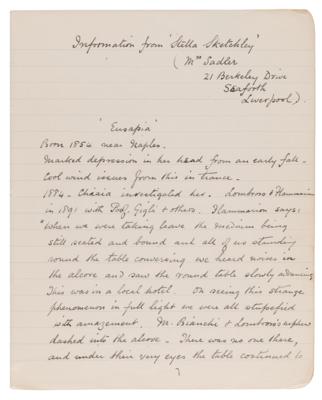 Information from 'Stella Sketchley'
(Mrs Sadler
21 Berkeley Drive
Seaforth
Liverpool).
'Eusapia'
Born 1854 near Naples.
Marked depression in her head from an early fall.
Cool wind issues from this in trance.
1884 - Chiaia investigated her. Lombroso & Flammarion
in 1891 with Prof. Gigli & others. Flammarion says:
"When we were taking leave the medium being
still seated and bound and all of us standing
round the table conversing we heard noises in
the alcove and saw the round table slowly advancing
This was in a local hotel. On seeing this strange
phenomenon in full light we were all stupefied
with amazement. Mr. Bianchi & Lombroso's nephew
dashed into the alcove. There was no one there,
and under their very eyes the table continued to